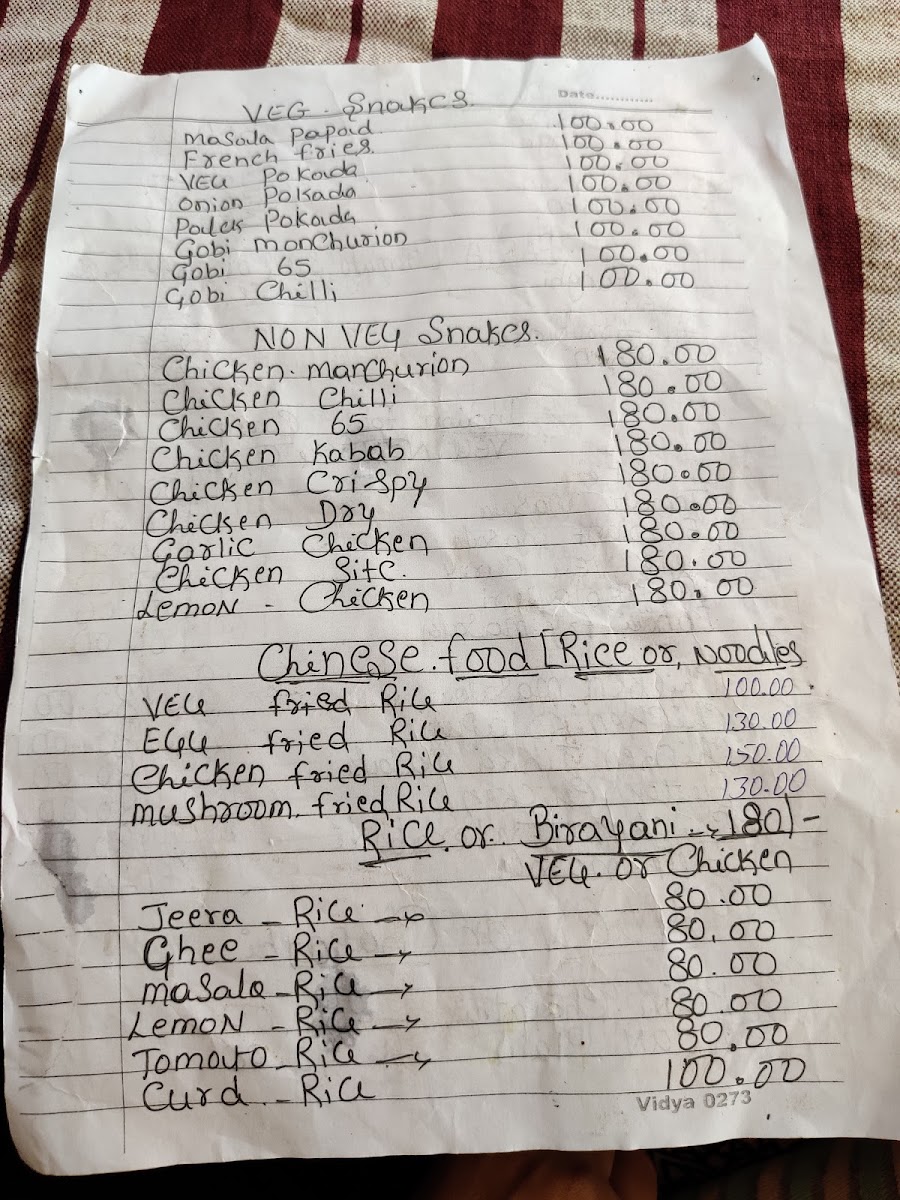 Date............
VEG. Snakes.
Masala Papad 100.00
French fries 100.00
VEG Pokada 100.00
Onion Pokada 100.00
Palak Pokada 100.00
Gobi Manchurion 100.00
Gobi 65 100.00
Gobi Chilli 100.00
NON VEG Snakes.
Chicken. Manchurion 180.00
Chicken Chilli 180.00
Chicken 65 180.00
Chicken Kabab 180.00
Chicken Crispy 180.00
Chicken Dry 180.00
Garlic Chicken 180.00
Chicken Site. 180.00
Lemon - Chicken 180.00
Chinese. food [Rice or, Noodles
VEG fried Rice 100.00
EGG fried Rice 130.00
Chicken fried Rice 150.00
mushroom. fried Rice 130.00
Rice. or Birayani → 180/-
VEG. or Chicken
Jeera - Rice → 80.00
Ghee - Rice → 80.00
Masala - Rice → 80.00
Lemon - Rice → 80.00
Tomato - Rice → 80.00
Curd - Rice 100.00
Vidya 0273